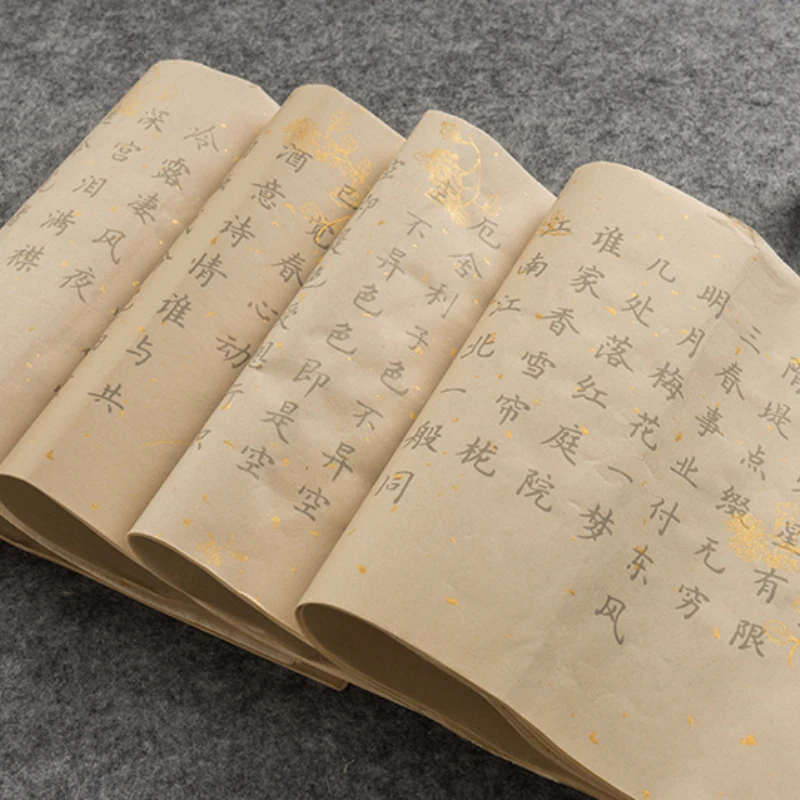 星有限
堤点缀无穷
三春事业付东风
明月梅花一梦
几处落红庭院
谁家香雪帘栊
江南江北一般同
厄舍利子色不异空
空不异色色即是空
已觉春心动
酒意诗情谁与共
冷露凄风夜
深宫泪满襟